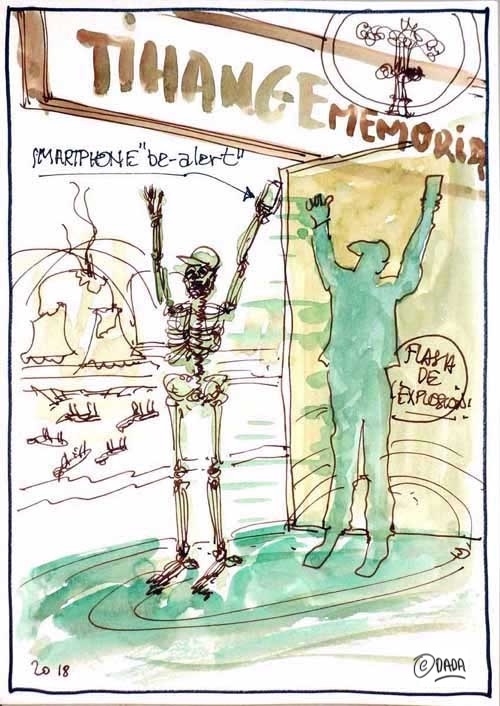 TIHANGE
MEMORIA
SMARTPHONE "be-alert"
FLASH
DE
L'EXPLOSION
2018
© DADA